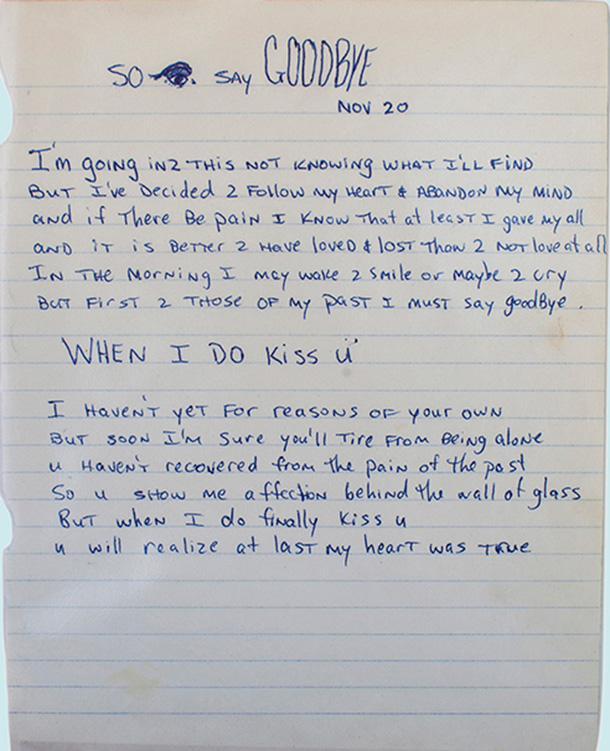 SO 👁. SAY GOODBYE
NOV 20
I'm going in2 THIS NOT KNOWING WHAT I'LL FIND
BUT I've Decided 2 Follow my Heart & ABANDON MY MIND
and if There Be pain I KNOW THAT at least I gave my all
AND iT is BeTTer 2 Have loveD & losT Than 2 NOT love aT all
IN THE MORNING I may wake 2 Smile or maybe 2 cry
BUT FirsT 2 THOSE OF my past I must say gooDBye.
WHEN I DO Kiss U
I Haven't yet For reasons OF your own
But soon I'm Sure you'll Tire From Being alone
u Haven't recovered from the pain of the past
So u show me affection behind the wall of glass
But when I do finally kiss u
u will realize at last my heart was TRUE